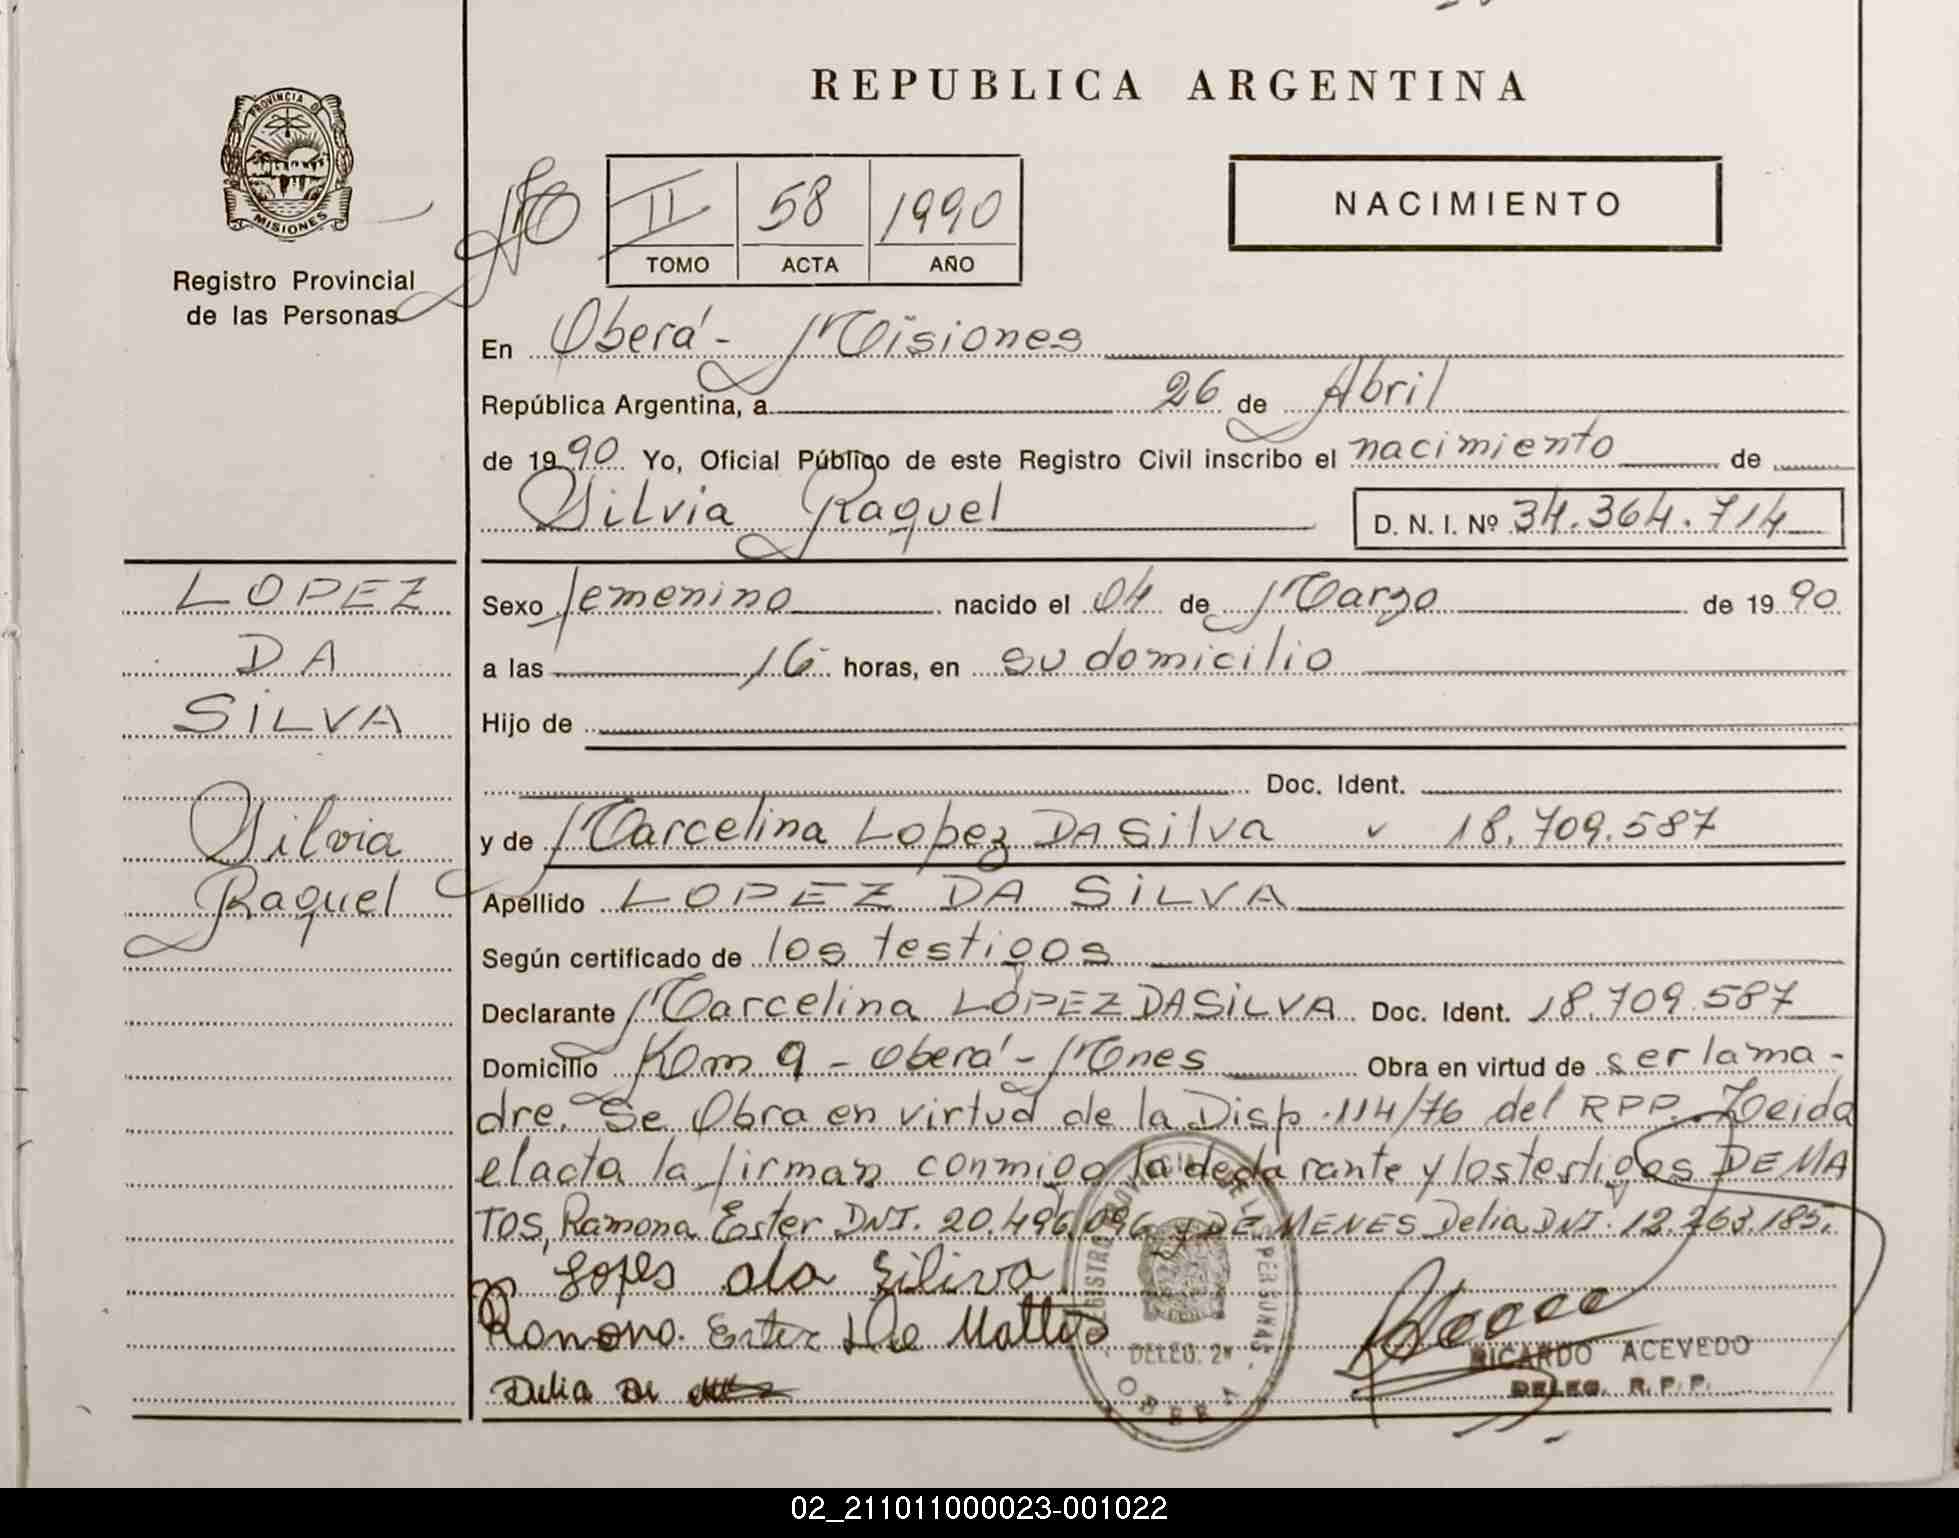 REPUBLICA ARGENTINA
PROVINCIA D
MISIONES
Registro Provincial
de las Personas
II 58 1990
TOMO ACTA AÑO
NACIMIENTO
En Oberá - Misiones
República Argentina, a 26 de Abril
de 1990 Yo, Oficial Público de este Registro Civil inscribo el nacimiento de
Silvia Raquel D. N. I. Nº 34.364.714
LOPEZ
DA
SILVA
Silvia
Raquel
Sexo femenino nacido el 04 de Marzo de 1990
a las 16 horas, en su domicilio
Hijo de
Doc. Ident.
y de Marcelina Lopez DA Silva 18.709.587
Apellido LOPEZ DA SILVA
Según certificado de los testigos
Declarante Marcelina LOPEZ DA SILVA Doc. Ident. 18.709.587
Domicilio Km 9 - Oberá - Mnes Obra en virtud de ser la ma-
dre. Se Obra en virtud de la Disp. 114/76 del RPP. Leida
el acta la firman conmigo la declarante y los testigos DE MA
TOS, Ramona Ester DNI. 20.496.096 y DE MENES Delia DNI. 12.263.185.
Lopes da Siliva
Ramona Ester De Mattos
Delia De
DELEG. 2ª
OBERA
RICARDO ACEVEDO
DELEG. R.P.P.
02_211011000023-001022